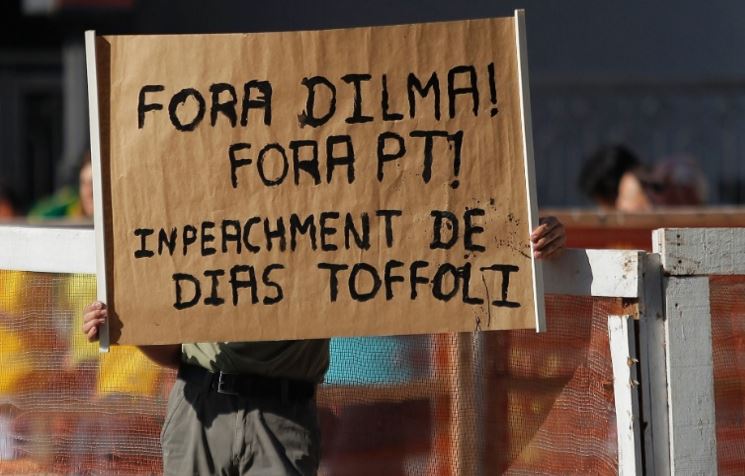 FORA DILMA!
FORA PT!
INPEACHMENT DE
DIAS TOFFOLI